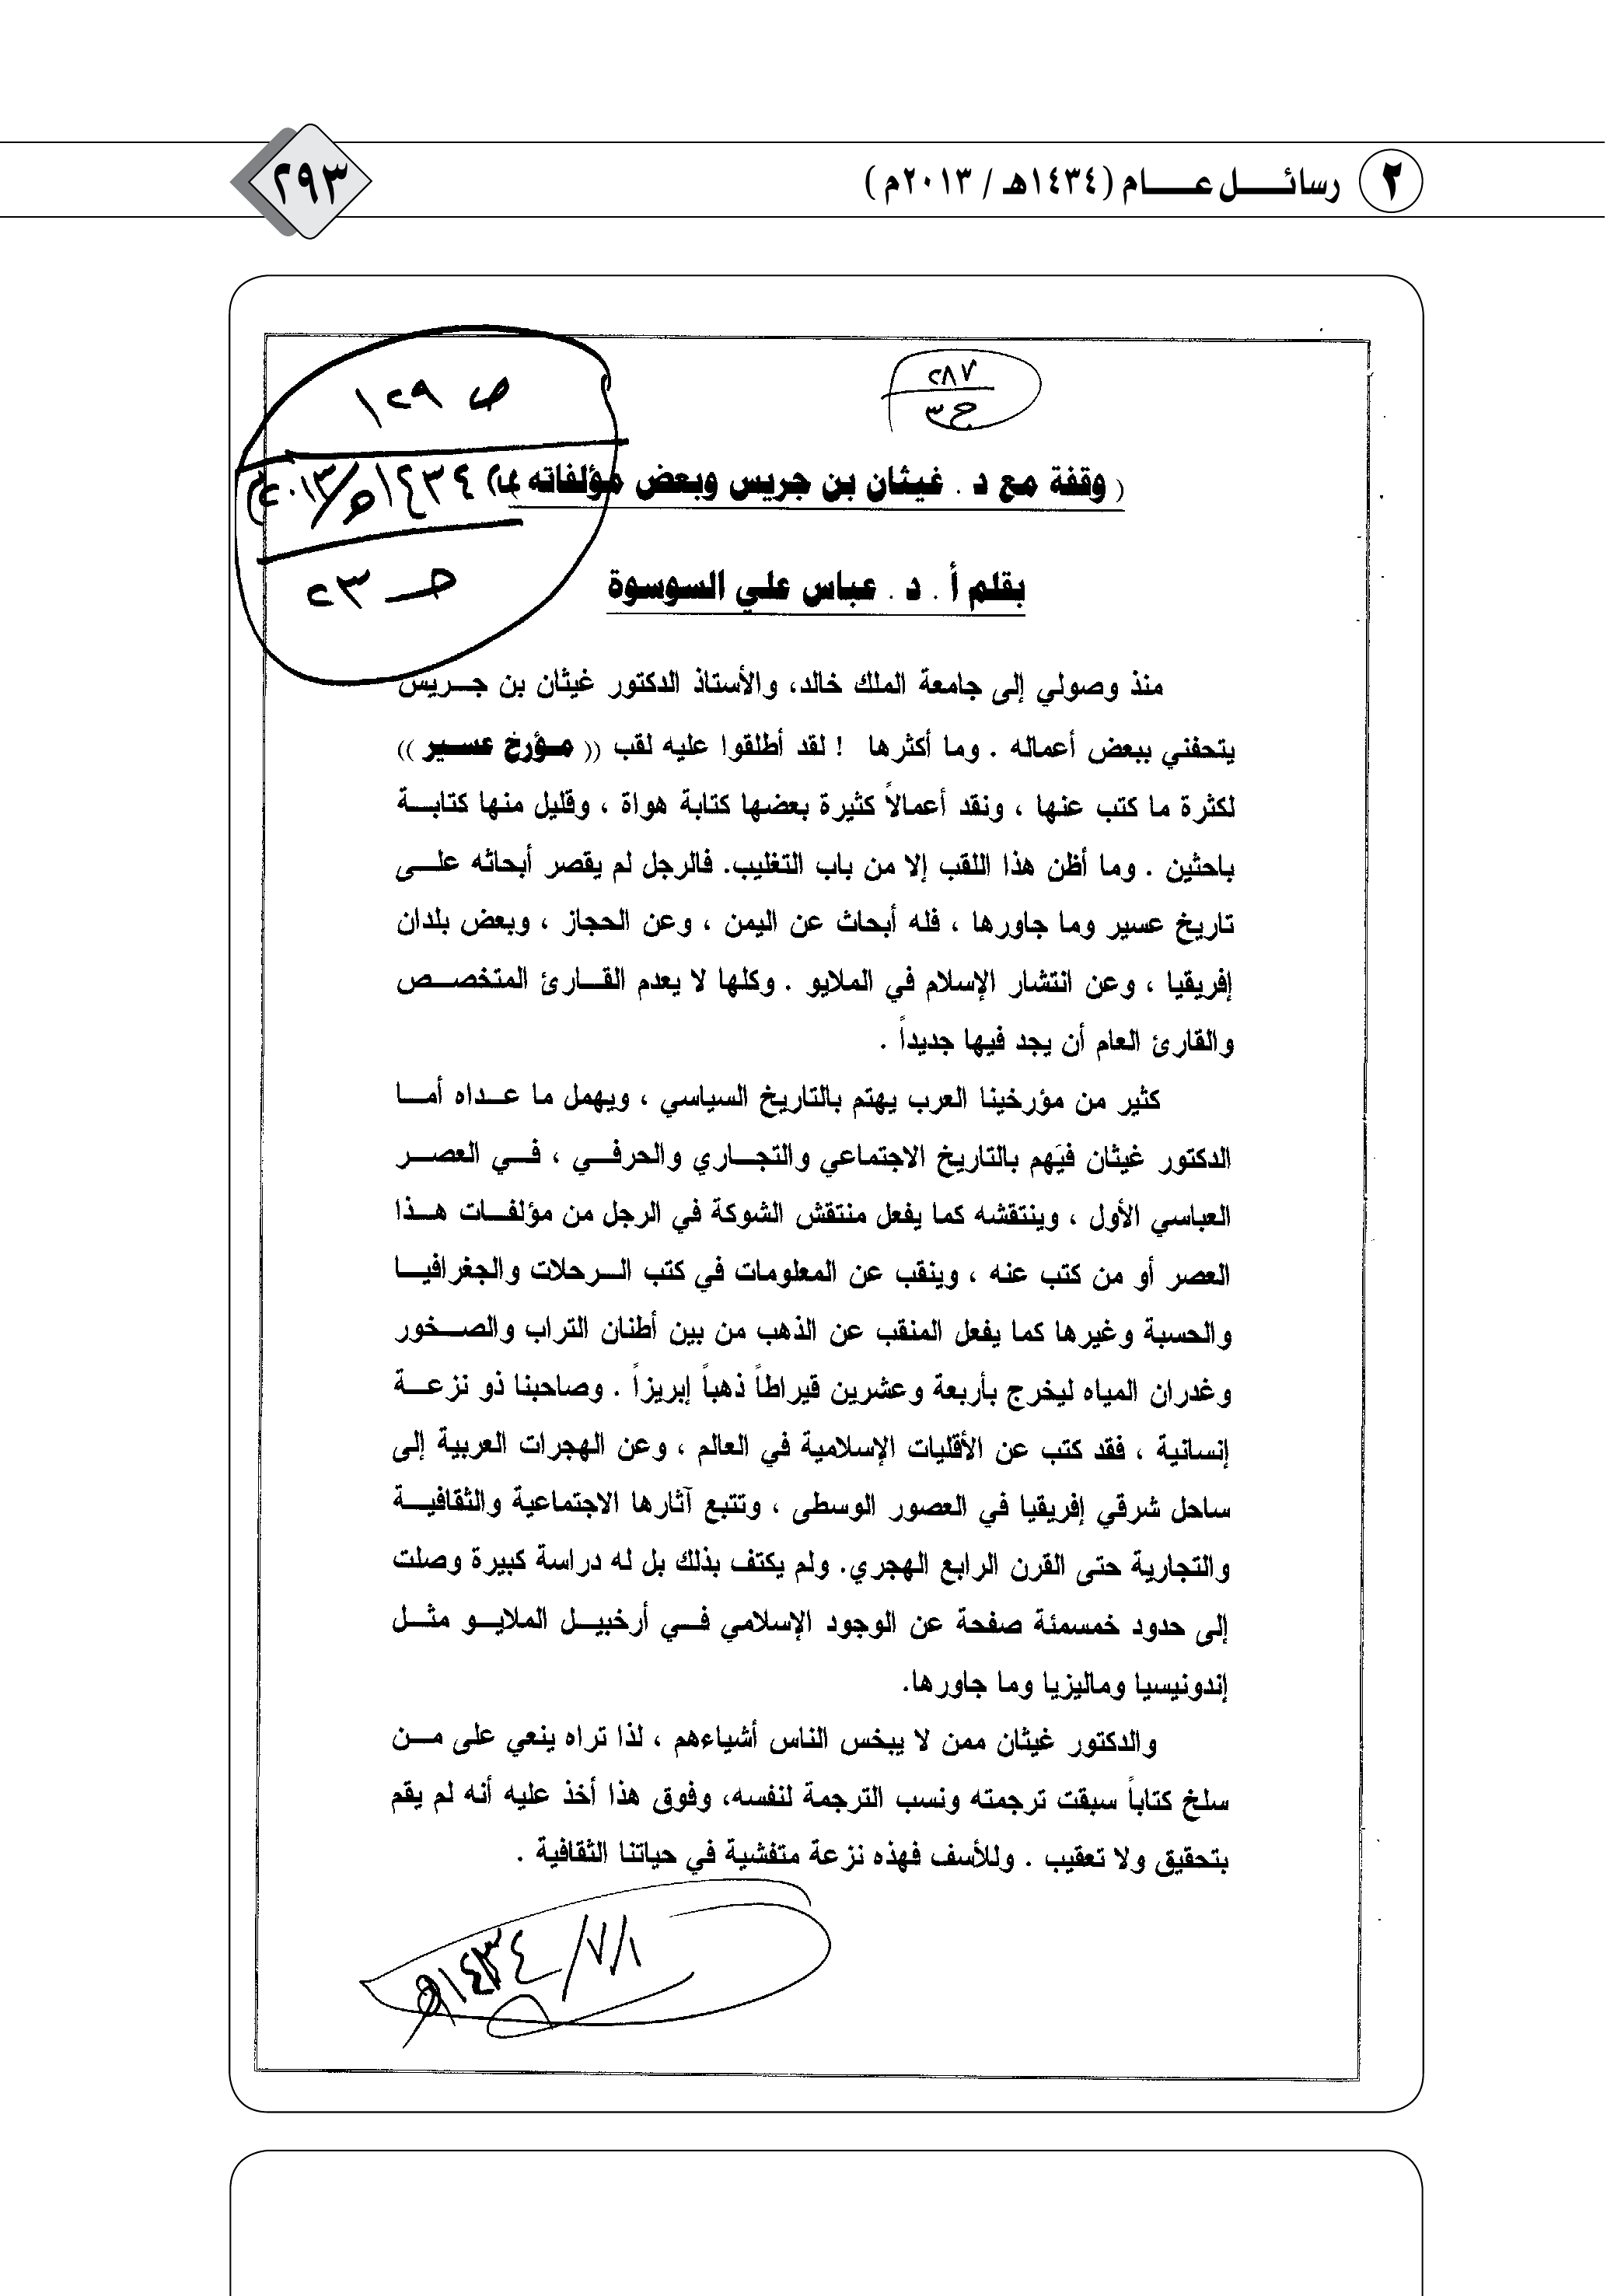 ٢ رسائـــل عـــام (١٤٣٤هـ / ٢٠١٣م)
٢٩٣
٢٨٧
ج٣
ص ١٢٩
( وقفة مع د . غيثان بن جريس وبعض مؤلفاته
١٤٣٤هـ/٢٠١٣م
بقلم أ . د . عباس علي السوسوة
حـ ٢٣
منذ وصولي إلى جامعة الملك خالد، والأستاذ الدكتور غيثان بن جـريس
يتحفني ببعض أعماله . وما أكثرها ! لقد أطلقوا عليه لقب (( مـؤرخ عسـير ))
لكثرة ما كتب عنها ، ونقد أعمالاً كثيرة بعضها كتابة هواة ، وقليل منها كتابـة
باحثين . وما أظن هذا اللقب إلا من باب التغليب. فالرجل لم يقصر أبحاثه علـى
تاريخ عسير وما جاورها ، فله أبحاث عن اليمن ، وعن الحجاز ، وبعض بلدان
إفريقيا ، وعن انتشار الإسلام في الملايو . وكلها لا يعدم القـارئ المتخصـص
والقارئ العام أن يجد فيها جديداً .
كثير من مؤرخينا العرب يهتم بالتاريخ السياسي ، ويهمل ما عـداه أمـا
الدكتور غيثان فيَهم بالتاريخ الاجتماعي والتجـاري والحرفـي ، فـي العصـر
العباسي الأول ، وينتقشه كما يفعل منتقش الشوكة في الرجل من مؤلفـات هـذا
العصر أو من كتب عنه ، وينقب عن المعلومات في كتب الـرحلات والجغرافيـا
والحسبة وغيرها كما يفعل المنقب عن الذهب من بين أطنان التراب والصـخور
وغدران المياه ليخرج بأربعة وعشرين قيراطاً ذهباً إبريزاً . وصاحبنا ذو نزعـة
إنسانية ، فقد كتب عن الأقليات الإسلامية في العالم ، وعن الهجرات العربية إلى
ساحل شرقي إفريقيا في العصور الوسطى ، وتتبع آثارها الاجتماعية والثقافيـة
والتجارية حتى القرن الرابع الهجري. ولم يكتف بذلك بل له دراسة كبيرة وصلت
إلى حدود خمسمئة صفحة عن الوجود الإسلامي فـي أرخبيـل الملايـو مثـل
إندونيسيا وماليزيا وما جاورها.
والدكتور غيثان ممن لا يبخس الناس أشياءهم ، لذا تراه ينعي على مـن
سلخ كتاباً سبقت ترجمته ونسب الترجمة لنفسه، وفوق هذا أخذ عليه أنه لم يقم
بتحقيق ولا تعقيب . وللأسف فهذه نزعة متفشية في حياتنا الثقافية .
١/٧/١٤٣٤هـ